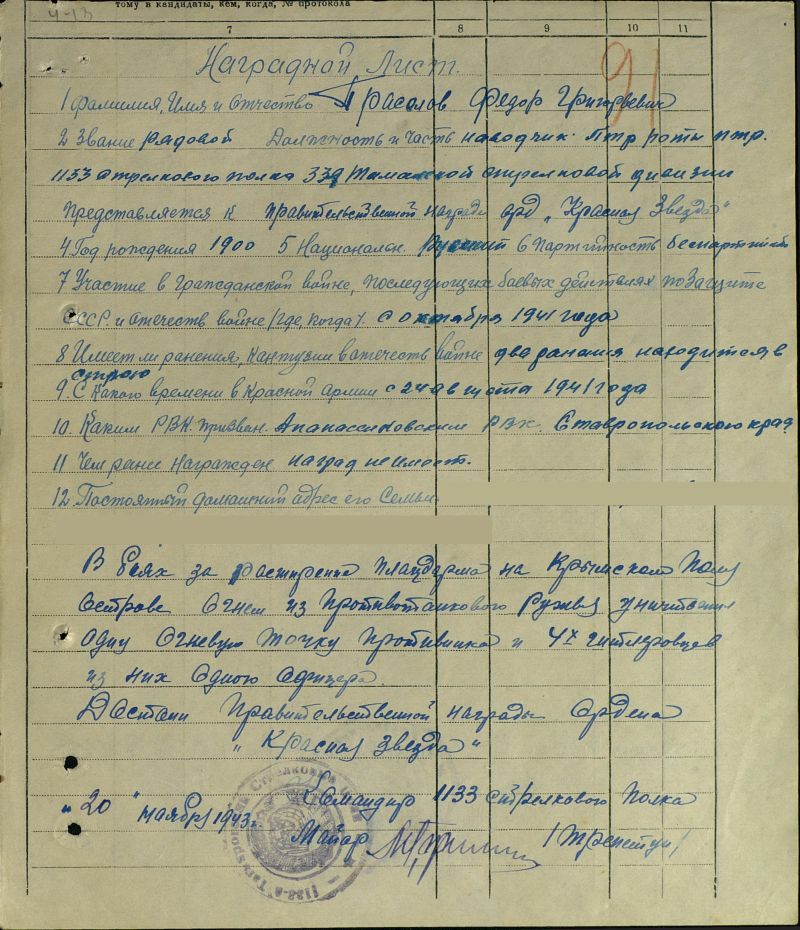 4-13
тому в кандидаты, кем, когда, № протокола
7 8 9 10 11
91
Наградной Лист.
1 Фамилия, Имя и Отчество Прасолов Федор Григорьевич
2 Звание рядовой Должность и часть наводчик Птр роты птр.
1133 стрелкового полка 339 Таманской стрелковой дивизии
Представляется к правительственной награде орд „Красная Звезда"
4 Год рождения 1900 5 Национальн. Русский 6 Партийность беспартий
7 Участие в гражданской войне, последующих боевых действиях по защите
СССР и отечеств войне (где, когда) с октября 1941 года
8 Имеет ли ранения, кантузии в отечеств войне два ранения находится в
строю
9. С какого времени в Красной армии с 24 августа 1941 года
10. Каким РВК. призван. Апанасенковским РВК. Ставропольского края
11 Чем ранее награжден наград не имеет.
12. Постоянный домашний адрес его Семьи
В боях за расширение плацдарма на Крымском Полу
острове огнем из Противотанкового Ружья уничтожил
одну огневую точку противника и 4х гитлеровцев
из них одного офицера.
Достоин Правительственной награды ордена
„Красная Звезда"
Командир 1133 стрелкового Полка
„20" ноября 1943 г.
Майор